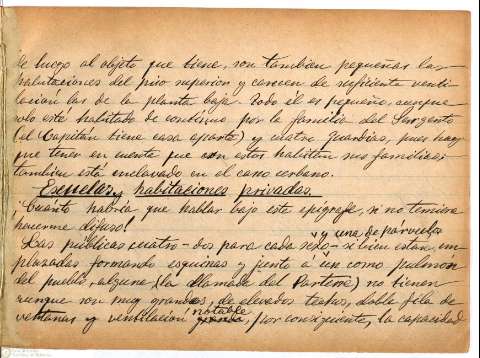 de luego al objeto que tiene, son tambien pequeñas las
habitaciones del piso superior y carecen de suficiente venti
lación las de la planta baja. Todo él es pequeño, aunque
solo esté habitado de continuo por la familia del Sargento
(el Capitán tiene casa aparte) y cuatro guardias, pues hay
que tener en cuenta que con estos habitan sus familias;
tambien está enclavado en el casco urbano.
Escuelas y habitaciones privadas.
¡Cuánto habría que hablar bajo este epígrafe, si no temiera
hacerme difuso!
y una de parvulos
Las públicas cuatro - dos para cada sexo - si bien estan em
plazadas formando esquinas y junto á un como pulmón
del pueblo, alguna, (la llamada del Parterre) no tienen
aunque son muy grandes, de elevados techos, doble fila de
notable
ventanas y ventilación grande, por consiguiente, la capacidad